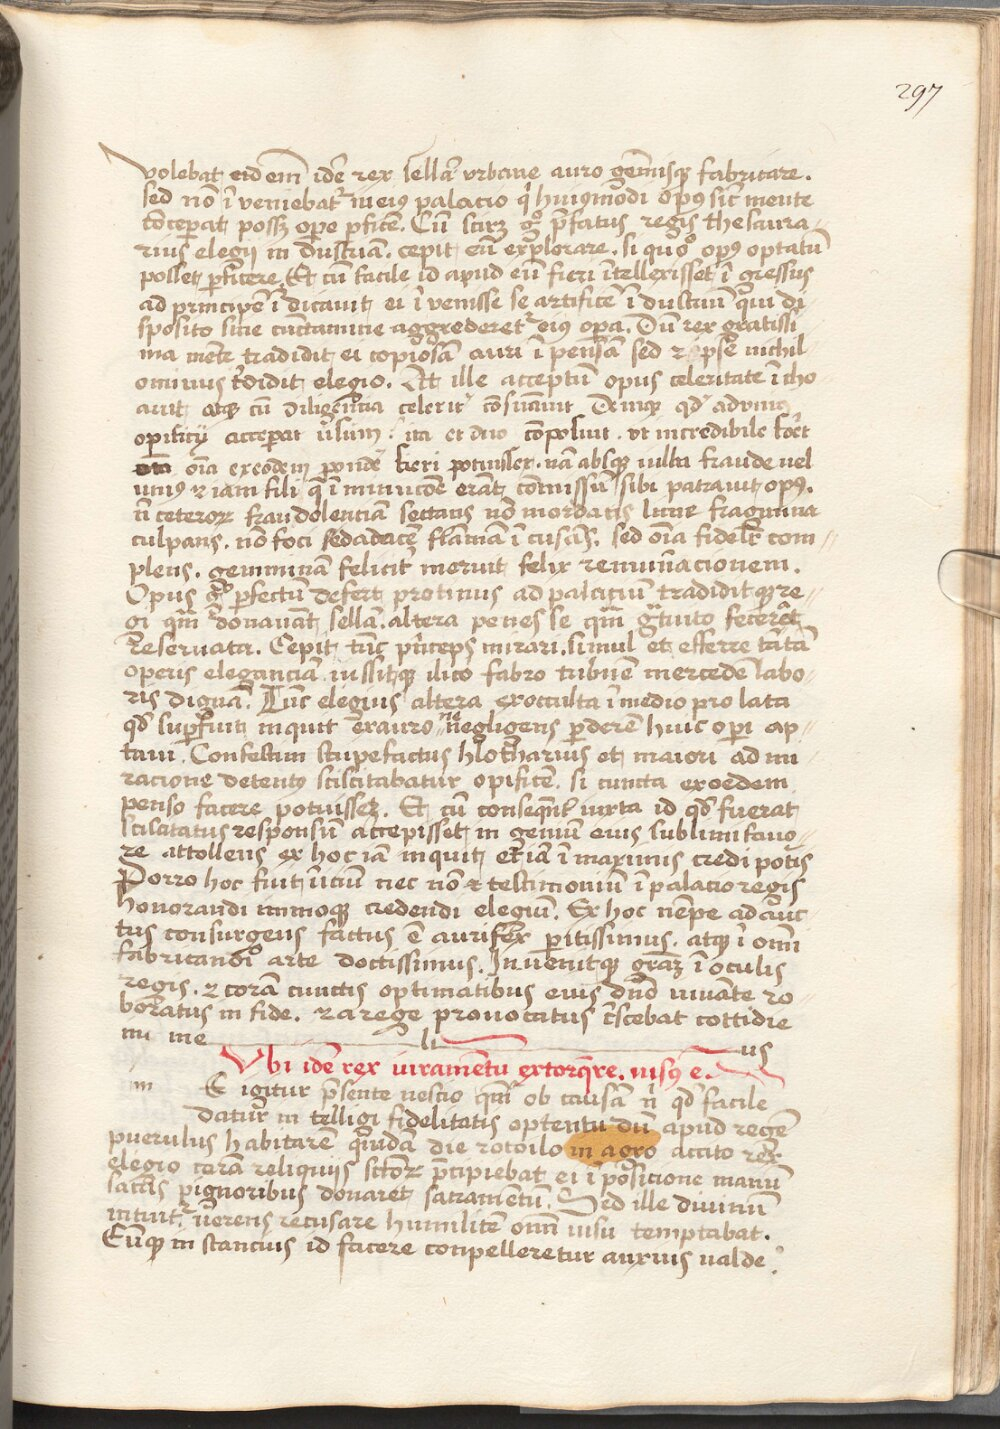 297
volebat eidem idē rex sellā urbane auro gemisq fabricare.
sed nō īveniebatʳ in eius palacio qͥ huiusmōdi opus sicͭ mente
cōceperat possꝫ ope pficē. Cū sciret gͦ pfatus regis thesaura
rius elegii in dustriā. cepit eū explorare. si quoͦ opꝰ optatū
posset perficere, Et cū facile id apud eū fieri ītellexisset ī gressus
ad principē ī dicavit ei ī venisse se artificē ī dustriū qui di-
sposito sine cunctamine aggrederetʳ eius opa. Dū rex gratissi
ma mente tradidit ei copiosā auri ī pensā sed & ipse nichil-
ominus tͣdidit elegio. At ille acceptū opus celeritate īcho
avit atqꝫ cū diligentia celeritʳ cōsumavit Deniqꝫ qdʳ ad unius
opificii acceperat usum. ita et duo cōposuit. ut incredibile foret
oīa exeodem pondeʳ fieri potuisset. nam absqꝫ ulla fraude vel
unius & iam fili q̄ īminucōe erāt cōmissū sibi patravit opꝰ.
nō ceteroꝝ fraudolenciā sectatus nō mordacis lime fragmina
culpans. nō foci sedadacē flāmā ī cusās. sed oīa fidelʳ com-
plens. geminām felicitʳ meruit felix remunacionem.
Opus gͦ perfectū defert protinus ad palaciū tradiditqꝫ re-
gi quā donavāt sellā. altera penes se quā gͣtuito fecerat
Reservata. Cepit tūc pͥnceps mirari. simul et efferre tātā
operis eleganciā iussitqꝫ ilico fabro tribuē mercedē labo-
ris dignā. Tūc elegius altera exocculta ī medio pro lata
qdʳ supfuit inquit exauro ne negligens perderē huic operi ap-
tavi. Confestim stupefactus hlotharius et maiori ad mi
racione detentus sciscitabatur opificē. si cuncta exoedem
penso facere potuisset. Et cū consequēt iuxta id qdʳ fuerat
sciscitatus responsū accepisset in geniū eius sublimi favo-
re attollens ex hoc iā inquit etiā ī maximis credi potis
Porro hoc fuit īiciū nec nō & testimoniū ī palacio regis
honorandi immoqꝫ credendi elegium. Ex hoc nēpe ad auc-
tus consurgens factus ē aurifex peritissimus. atqꝫ ī omni
fabricandi arte doctissimus. Invenitqꝫ grāꝫ ī oculis
regis. & corā cunctis optimatibus eius dnō iuvāte ro-
boratus in fide. & a rege provocatus cͥscebat cottidie
in me li us
Ubi idē rex iuramētū extorqͥre. nisus ē.
E igitur pͥsente nescio quā ob causā nͥ qdʳ facile
datur in telligi fidelitatis optentu dū apud regē
puerulus habitarē quadā die rotoilo in agro accito rex
elegio corā reliquiis sctōꝝ pͥcipiebat ei ī posicione manū
sacris pignoribus donaret sacramentū. Sed ille divinū
intuitʳ verens recusare humilitē omī nisu temptabat.
Eūqꝫ in stancius id facere conpelleretur anxius valde.